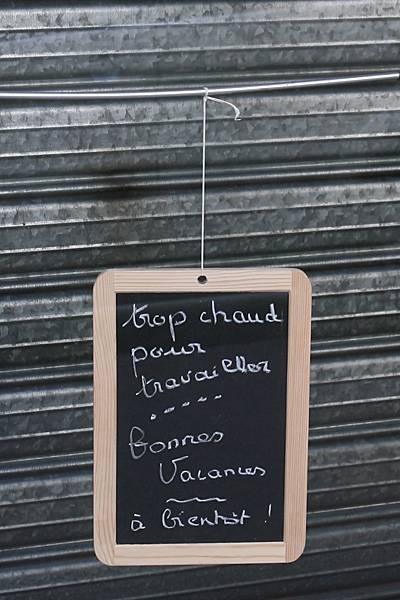 trop chaud
pour
travailler
.....
Bonnes
Vacances
à bientôt !